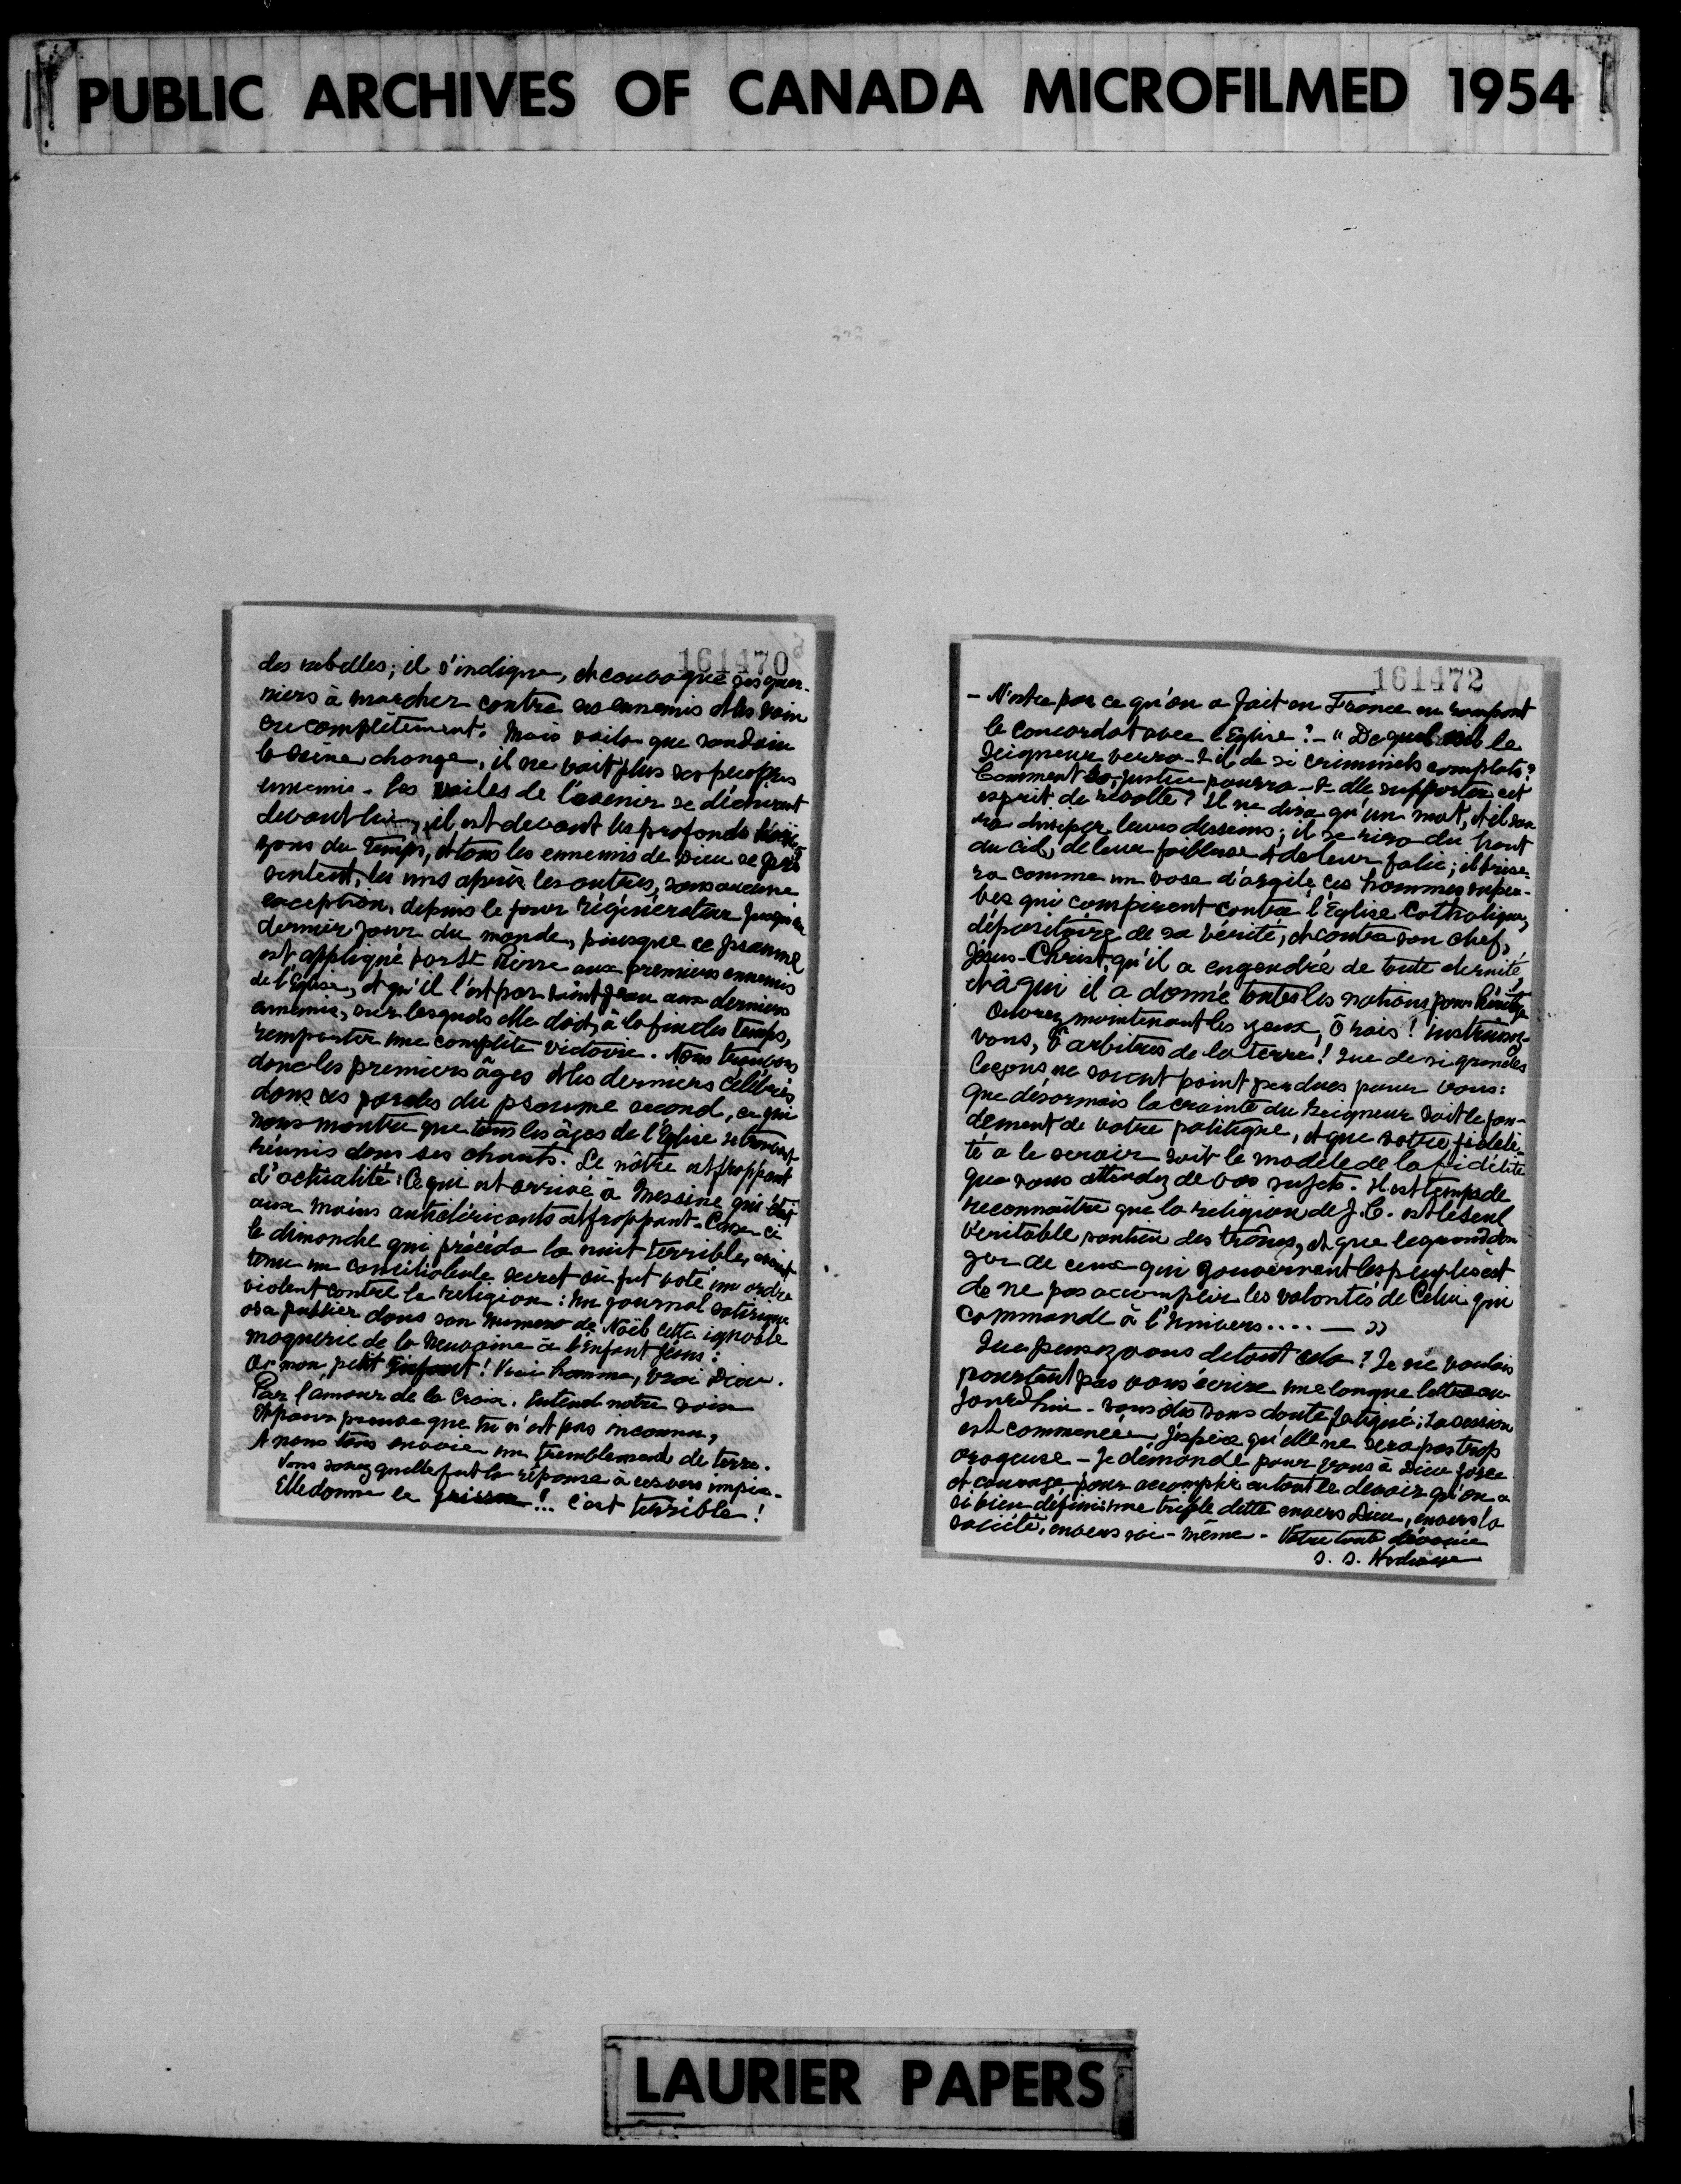 PUBLIC ARCHIVES OF CANADA MICROFILMED 1954
161470
des rebelles; il s'indigne, et convoque ses guer-
riers à marcher contre ces ennemis et les vain
cre complètement. Mais voilà que soudain
la scène change, il ne voit plus ses propres
ennemis - les voiles de l'avenir se déchirent
devant lui, il est devant les profonds hori
zons du temps, et tous les ennemis de Dieu se pré
sentent, les uns après les autres, sans aucune
exception, depuis le jour régénérateur jusqu'au
dernier jour du monde, puisque ce psaume
est appliqué par St Pierre aux premiers ennemis
de l'Eglise, et qu'il l'est par saint Jean aux derniers
ennemis, sur lesquels elle doit, à la fin des temps,
remporter une complète victoire. Nous trouvons
donc les premiers âges et les derniers célébrés
dans ces paroles du psaume second, ce qui
nous montre que tous les âges de l'Eglise se trouvent
réunis dans ses chants. Le nôtre est frappant
d'actualité: Ce qui est arrivé à Messine qui était
aux mains anticléricants est frappant - Ceux-ci
le dimanche qui précéda la nuit terrible, avait
tenu un conciliabule secret où fut voté un ordre
violent contre la religion: Un journal satirique
osa publier dans son numero de Noël cette ignoble
moquerie de la Neuvaine à l'Enfant Jésus:
O mon petit Enfant! Vrai homme, vrai Dieu.
Par l'amour de la Croix. Entend notre voix
Et pour preuve que tu n'est pas inconnu,
A nous tous envoie un tremblement de terre.
Vous savez quelle fut la réponse à ces vers impies.
Elle donne le frisson!... C'est terrible!
161472
- N'est-ce pas ce qu'on a fait en France en rompant
le concordat avec l'Eglise? - "De quel oeil le
Seigneur verra-t-il de si criminels complots?
Comment sa justice pourra-t-elle supporter cet
esprit de révolte? Il ne dira qu'un mot, et il sau
ra dissiper leurs desseins; il se rira du haut
du ciel, de leur faiblesse et de leur folie; il brise-
ra comme un vase d'argile ces hommes super-
bes qui conspirent contre l'Eglise Catholique,
dépositaire de sa vérité, et contre son chef,
Jésus-Christ, qu'il a engendré de toute éternité,
et à qui il a donné toutes les nations pour héritage
Ouvrez maintenant les yeux, ô rois! instruisez-
vous, ô arbitres de la terre! Que de si grandes
leçons ne soient point perdues pour vous:
Que désormais la crainte du Seigneur soit le fon-
dement de votre politique, et que votre fidéli-
té à le servir soit le modèle de la fidélité
que vous attendez de vos sujets. Il est temps de
reconnaître que la religion de J. C. est le seul
véritable soutien des trônes, et que le grand dan
ger de ceux qui gouvernent les peuples est
de ne pas accomplir les volontés de Celui qui
commande à l'Univers.... — »
Que pensez vous de tout cela? Je ne voulais
pourtant pas vous écrire une longue lettre au-
jourd'hui - vous êtes sans doute fatigué; la session
est commencée. J'espère qu'elle ne sera pas trop
orageuse - Je demande pour vous à Dieu force
et courage pour accomplir en tout le devoir qu'on a
si bien défini: une triple dette envers Dieu, envers la
société, envers soi-même - Votre toute dévouée
LAURIER PAPERS